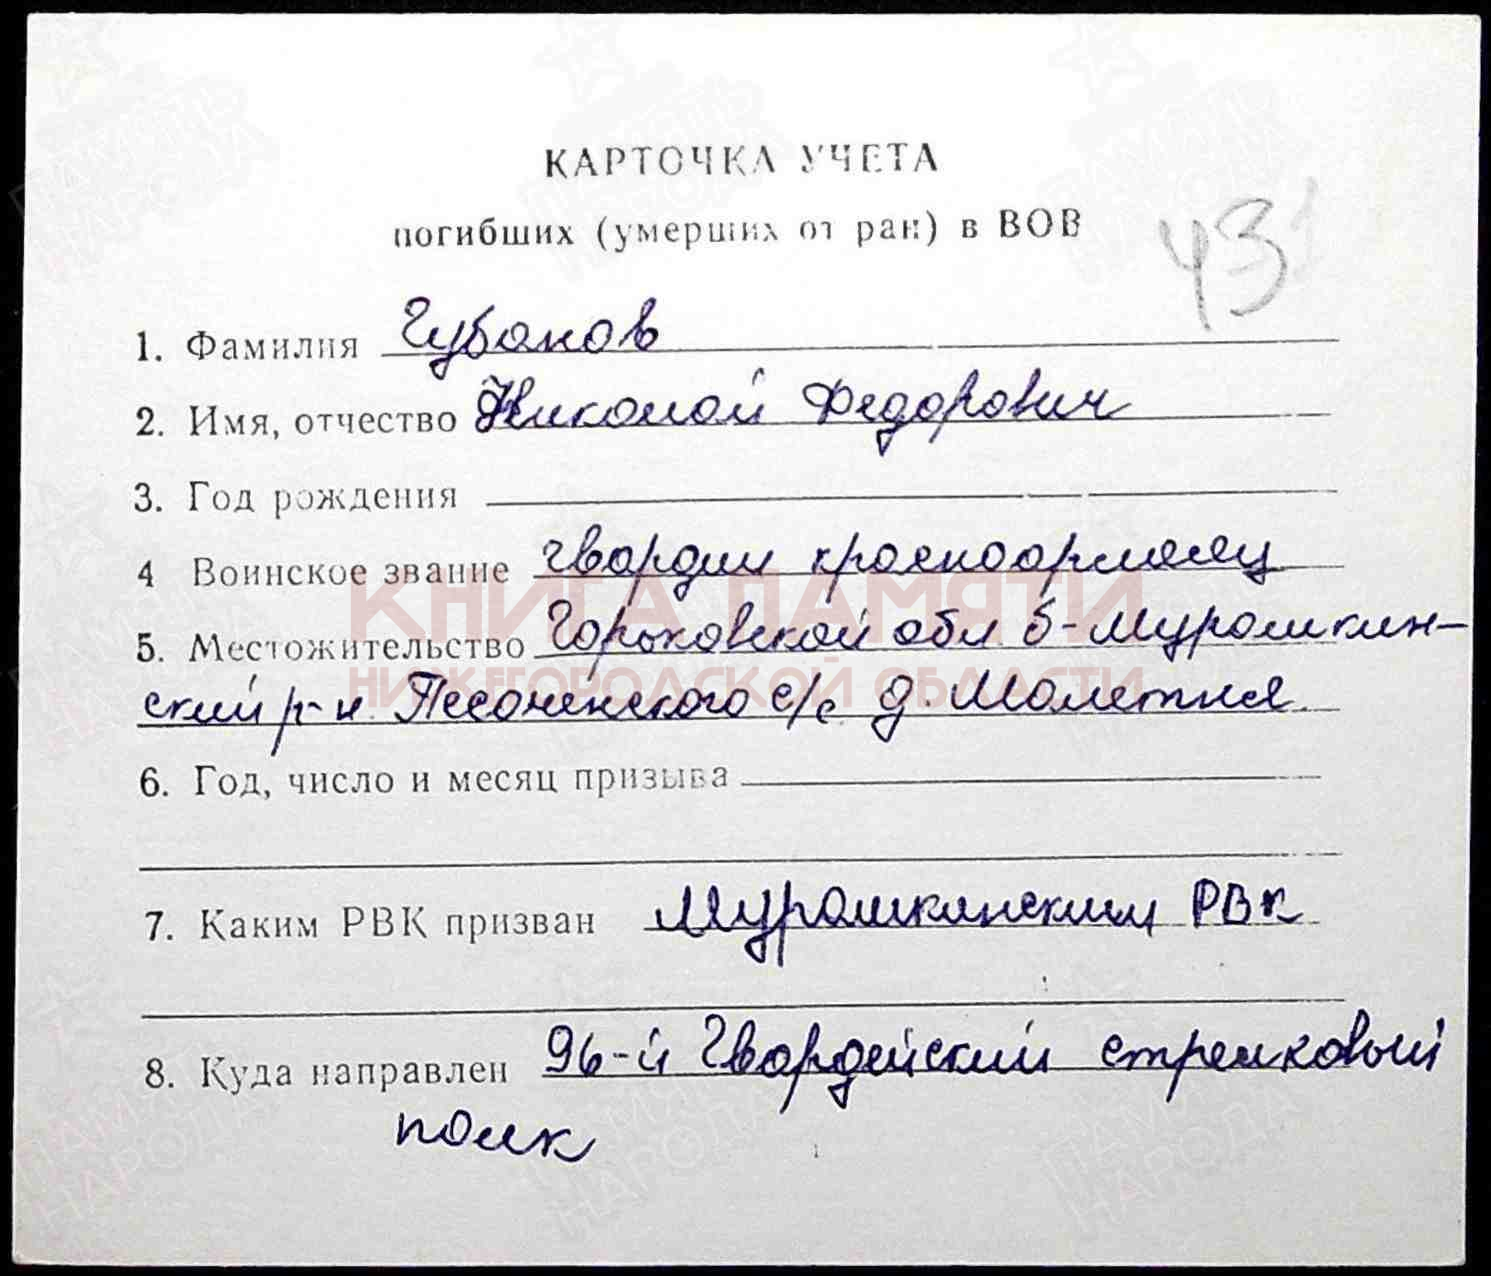 КАРТОЧКА УЧЕТА
погибших (умерших от ран) в ВОВ
43
1. Фамилия Губанов
2. Имя, отчество Николай Федорович
3. Год рождения
4 Воинское звание гвардии красноармеец
КНИГА ПАМЯТИ
5. Местожительство Горьковской обл Б-Мурашкин-
НИЖЕГОРОДСКОЙ ОБЛАСТИ
ский р-н Песоченского с/с д.
6. Год, число и месяц призыва
7. Каким РВК призван Мурашкинским РВК
8. Куда направлен 96-й Гвардейский стрелковый
полк